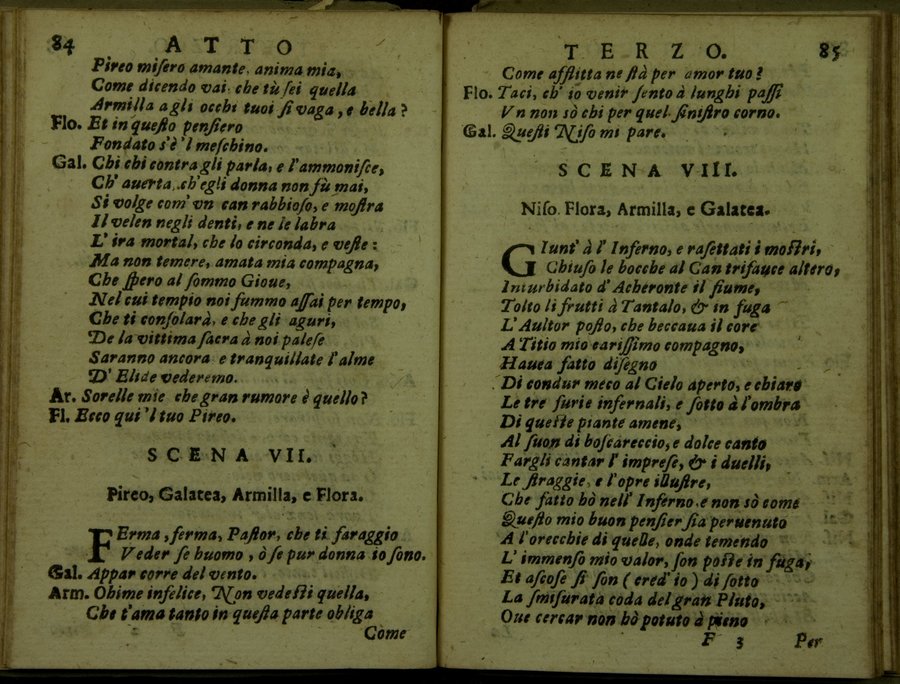 84 ATTO
Pireo miſero amante, anima mia,
Come dicendo vai: che tù ſei quella
Armilla a gli occhi tuoi ſi vaga, e bella?
Flo. Et in queſto penſiero
Fondato s'è 'l meſchino.
Gal. Chi chi contra gli parla, e l'ammoniſce,
Ch' auerta, ch'egli donna non fù mai,
Si volge com' vn can rabbioſo, e moſtra
Il velen negli denti, e ne le labra
L' ira mortal, che lo circonda, e veſte:
Ma non temere, amata mia compagna,
Che ſpero al ſommo Gioue,
Nel cui tempio noi fummo aſſai per tempo,
Che ti conſolarà, e che gli aguri,
De la vittima ſacra à noi paleſe
Saranno ancora e tranquillate l'alme
D' Elide vederemo.
Ar. Sorelle mie che gran rumore è quello?
Fl. Ecco qui 'l tuo Pireo.
SCENA VII.
Pireo, Galatea, Armilla, e Flora.
FErma, ferma, Paſtor, che ti faraggio
Veder ſe huomo, ò ſe pur donna io ſono.
Gal. Appar corre del vento.
Arm. Ohime infelice, Non vedeſti quella,
Che t'ama tanto in queſta parte obliga
Come
TERZO. 85
Come afflitta ne ſtà per amor tuo?
Flo. Taci, ch' io venir ſento à lunghi paſſi
Vn non sò chi per quel ſiniſtro corno.
Gal. Queſti Niſo mi pare.
SCENA VIII.
Niſo. Flora, Armilla, e Galatea.
GIunt' à l' Inferno, e raſettati i moſtri,
Chiuſo le bocche al Can trifauce altero,
Inturbidato d' Acheronte il fiume,
Tolto li frutti à Tantalo, & in fuga
L' Aultor poſto, che beccaua il core
A Titio mio cariſſimo compagno,
Hauea fatto diſegno
Di condur meco al Cielo aperto, e chiaro
Le tre furie infernali, e ſotto à l'ombra
Di queſte piante amene,
Al ſuon di boſcareccio, e dolce canto
Fargli cantar l' impreſe, & i duelli,
Le ſtraggie, e l'opre illuſtre,
Che fatto hò nell' Inferno, e non sò come
Queſto mio buon penſier ſia peruenuto
A l'orecchie di quelle, onde temendo
L' immenſo mio valor, ſon poſte in fuga,
Et aſcoſe ſi ſon ( cred' io ) di ſotto
La ſmiſurata coda del gran Pluto,
Oue cercar non hò potuto à pieno
F 3 Per